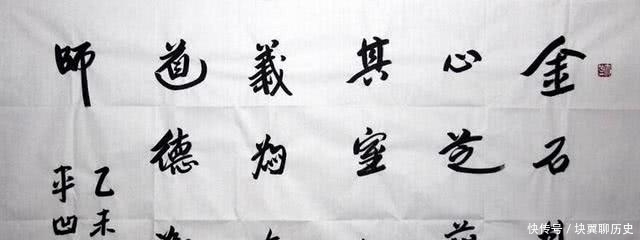 金石
心芝
其室
義為
道德
師
乙未
平凹
快传号／块翼聊历史